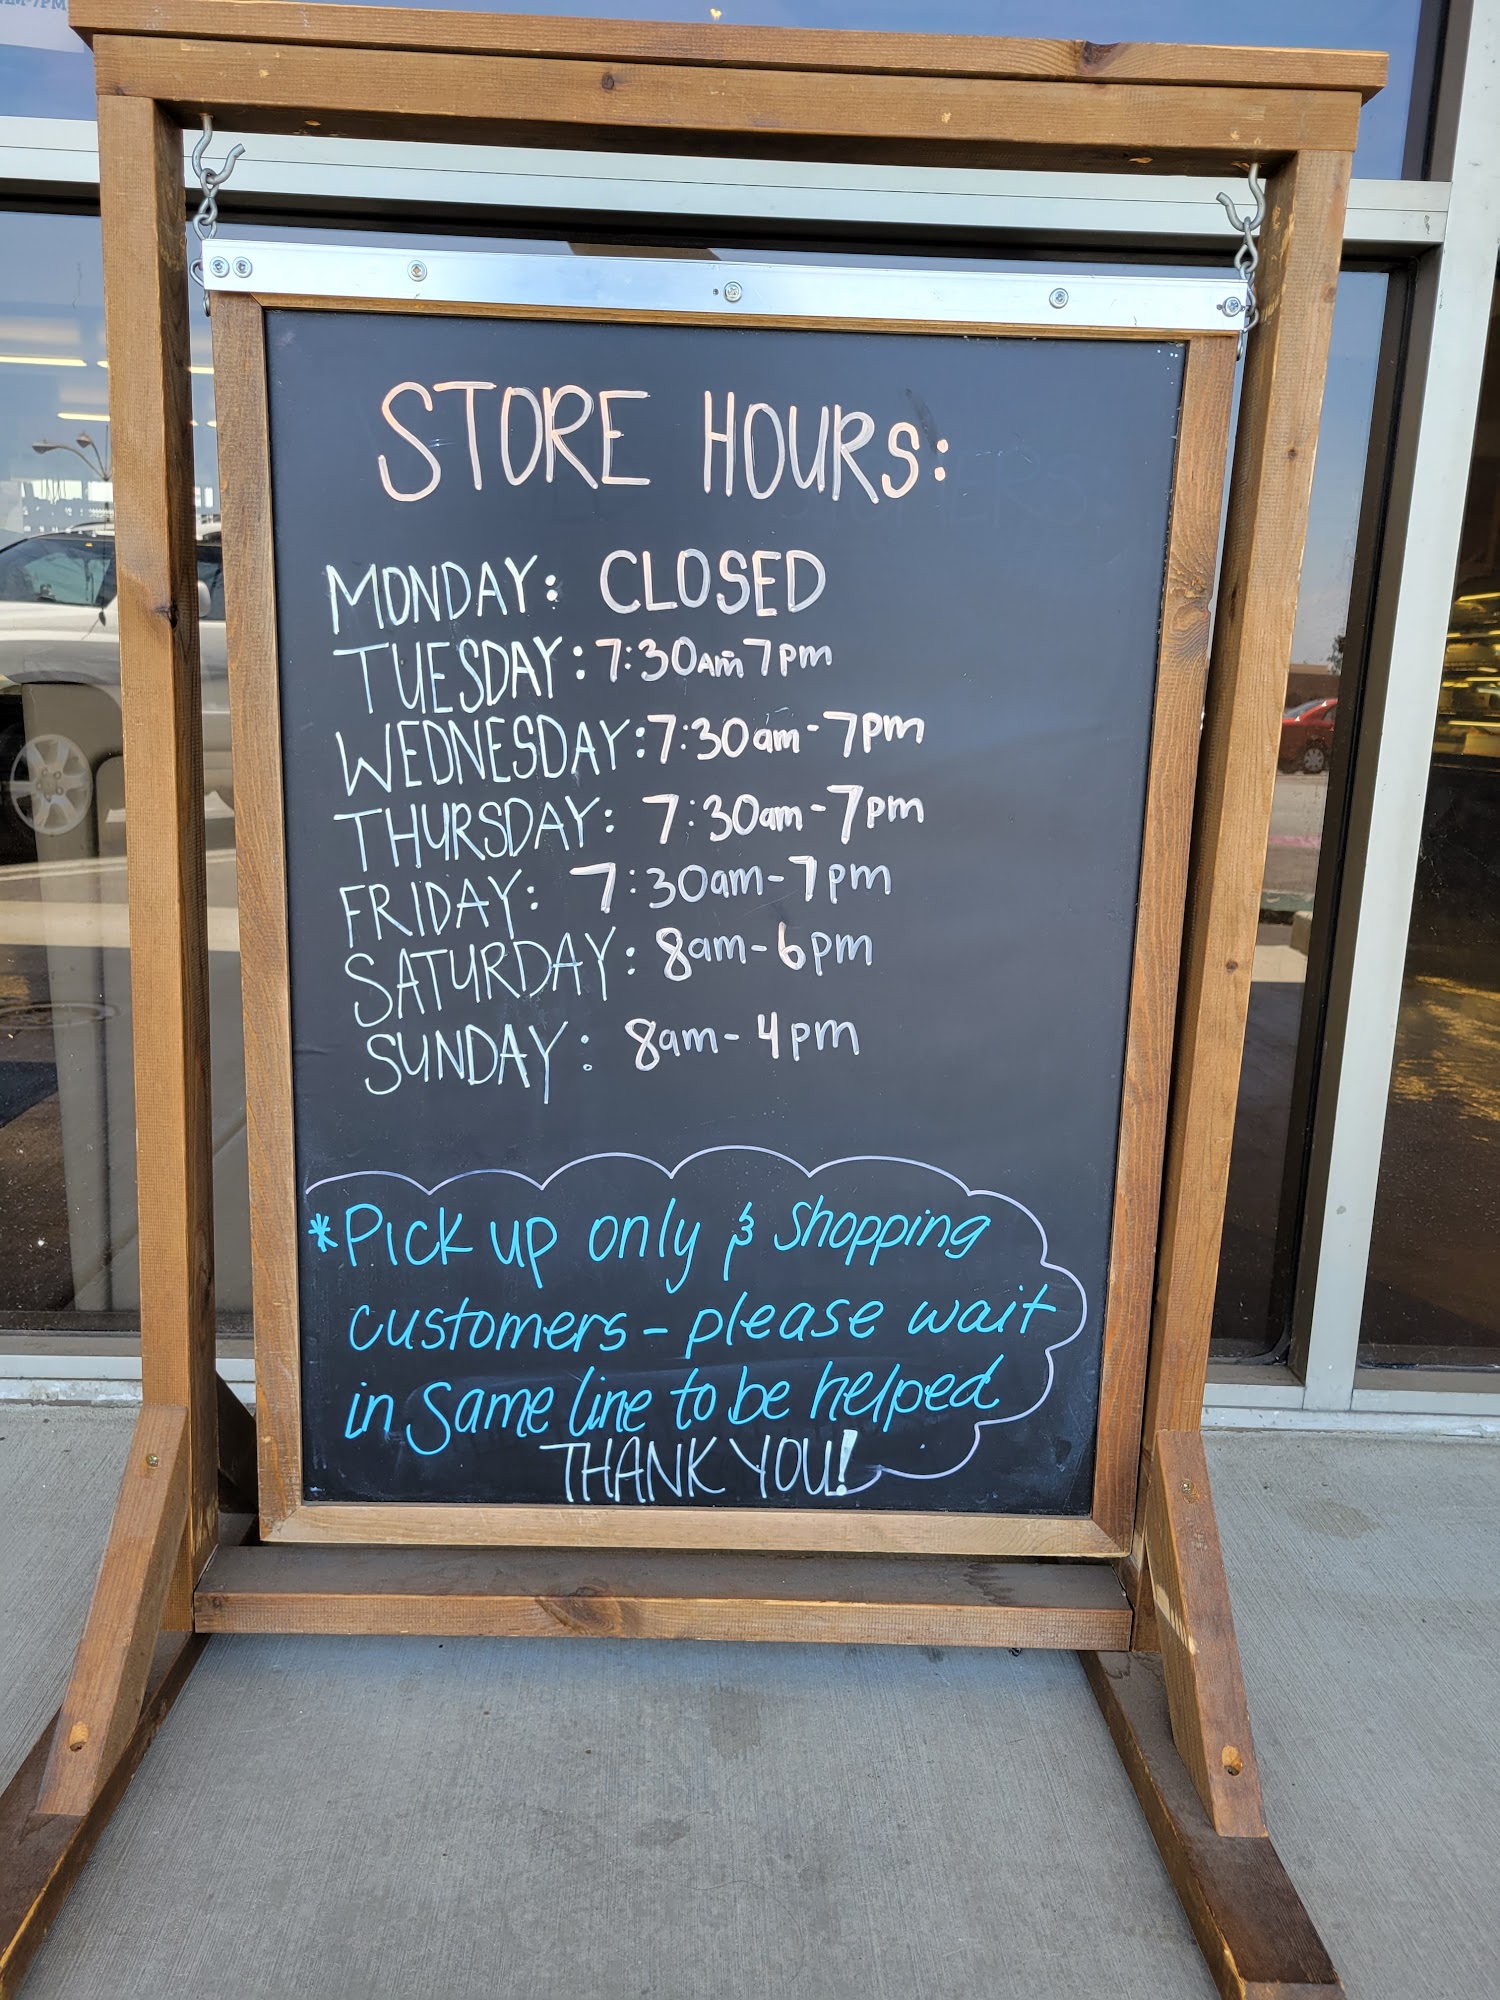 STORE HOURS:
MONDAY: CLOSED
TUESDAY: 7:30AM 7pm
WEDNESDAY: 7:30am - 7pm
THURSDAY: 7:30am - 7pm
FRIDAY: 7:30am - 7pm
SATURDAY: 8am - 6pm
SUNDAY: 8am - 4pm
*Pick up only & Shopping
customers - please wait
in same line to be helped
THANK YOU!